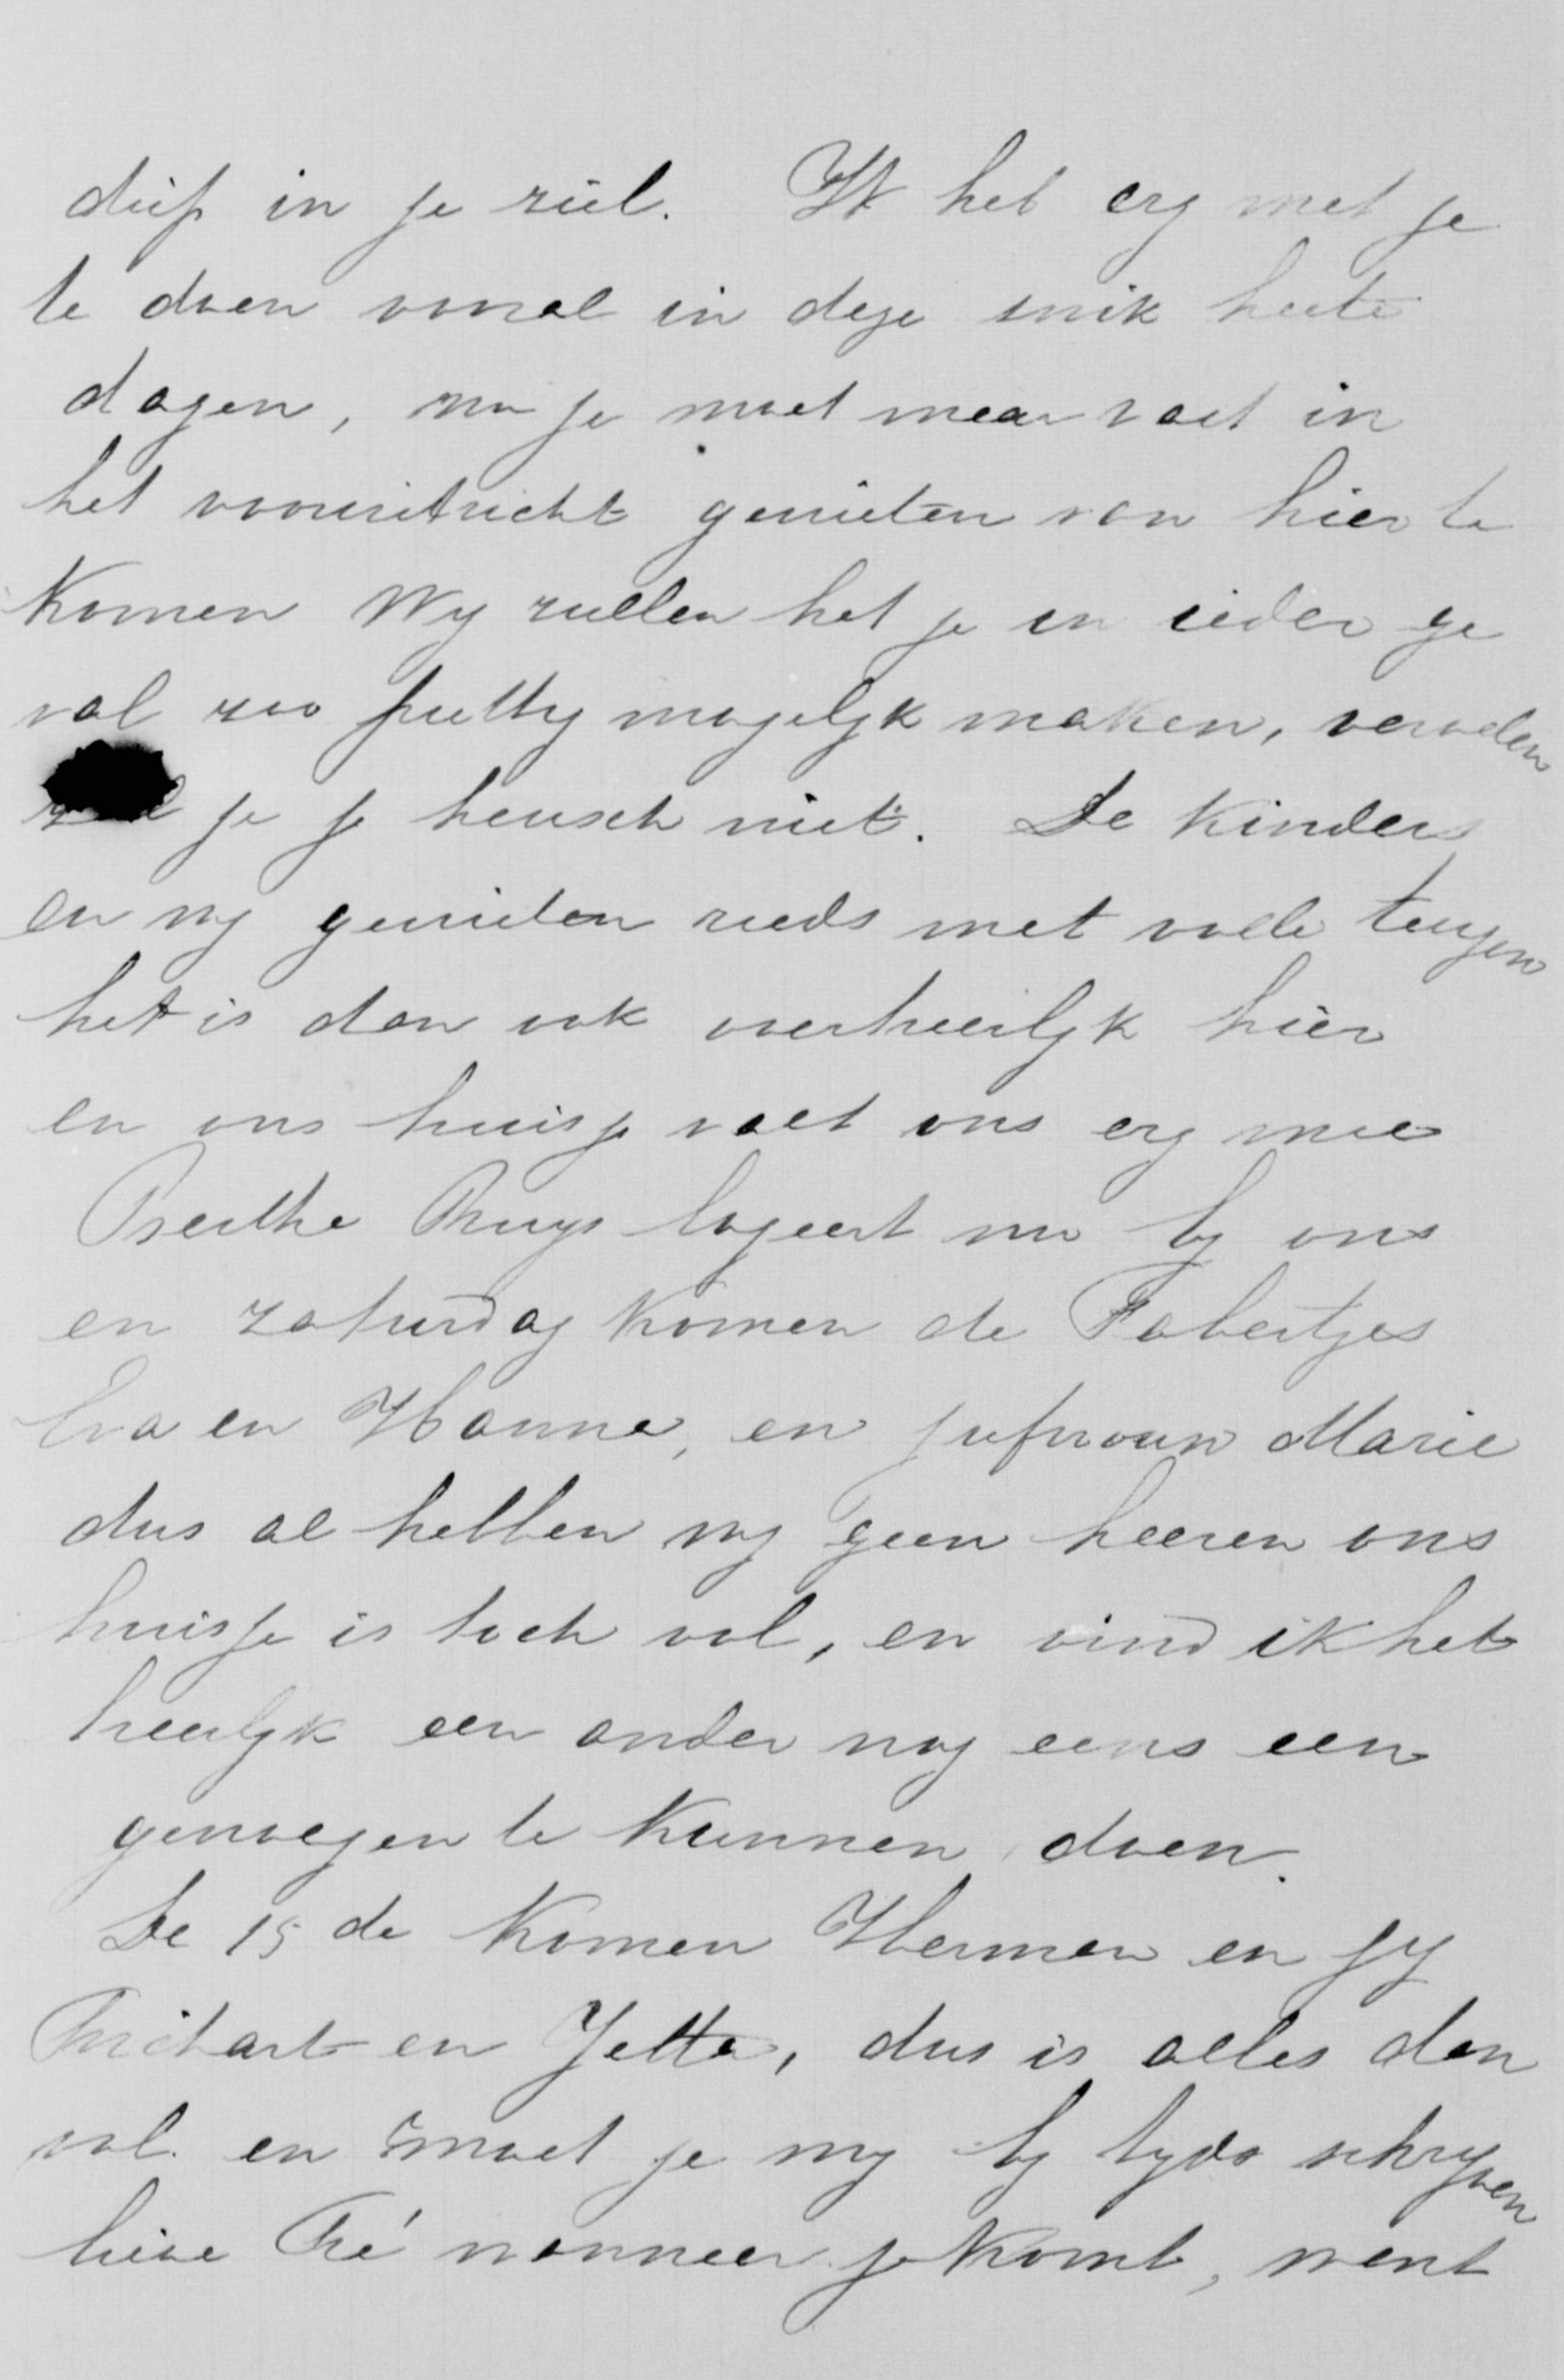 diep in je ziel. Ik heb erg met je
te doen vooral in deze snik heete
dagen, nu je moet maar vast in
het vooruitzicht genieten van hier te
komen Wij zullen het je in ieder ge
val zoo prettig mogelijk maken, vervelen
zal je je heusch niet. De kinders
en wij genieten reeds met volle teugen
het is dan ook overheerlijk hier
en ons huisje valt ons erg mee
Berthe Ruys logeert nu bij ons
en zaturdag komen de Fabertjes
Eva en Hanna, en jufvrouw Marie
dus al hebben wij geen heeren ons
huisje is toch vol, en vind ik het
heerlijk een ander nog eens een
genoegen te kunnen doen.
De 15 de komen Herman en jij
en Jetta, dus is alles dan
vol en moet je mij bij tijds schrijven
lieve Ré wanneer je komt, want